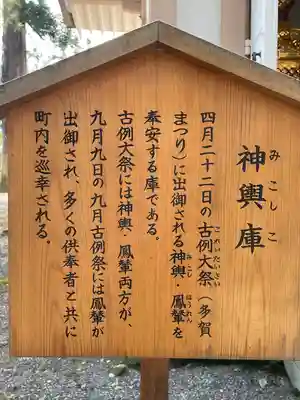 神輿庫
みこしこ
四月二十二日の古例大祭（多賀
これいたいさい
まつり）に出御される神輿・鳳輦を
みこし
ほうれん
奉安する庫である。
古例大祭には神輿、鳳輦両方が、
九月九日の九月古例祭には鳳輦が
出御され、多くの供奉者と共に
町内を巡幸される。